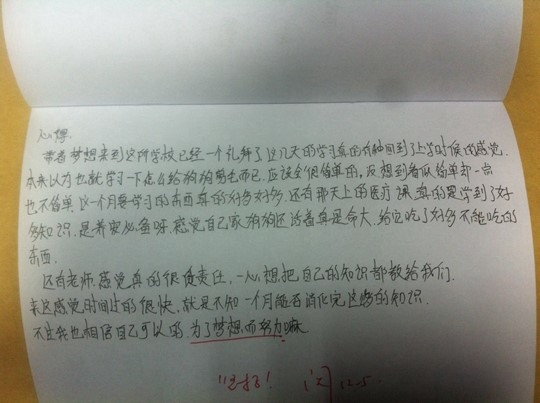 心得.
带着梦想来到这所学校已经一个礼拜了这几天的学习真的有种回到了上学时候的感觉.
本来以为也就学习一下怎么给狗狗剪毛而已.应该会很简单的,没想到看似简单却一点
也不简单.这一个月要学习的东西真的好多好多.还有那天上的医疗课真的是学到了好
多知识,是养宠必备呀.感觉自己家狗狗还活着真是命大.给它吃了好多不能吃的
东西.
还有老师,感觉真的很负责任,一心想把自己的知识都教给我们.
来这感觉时间过的很快,就是不知一个月能否消化完这些的知识.
不过我也相信自己可以的.为了梦想而努力嘛
12.5.